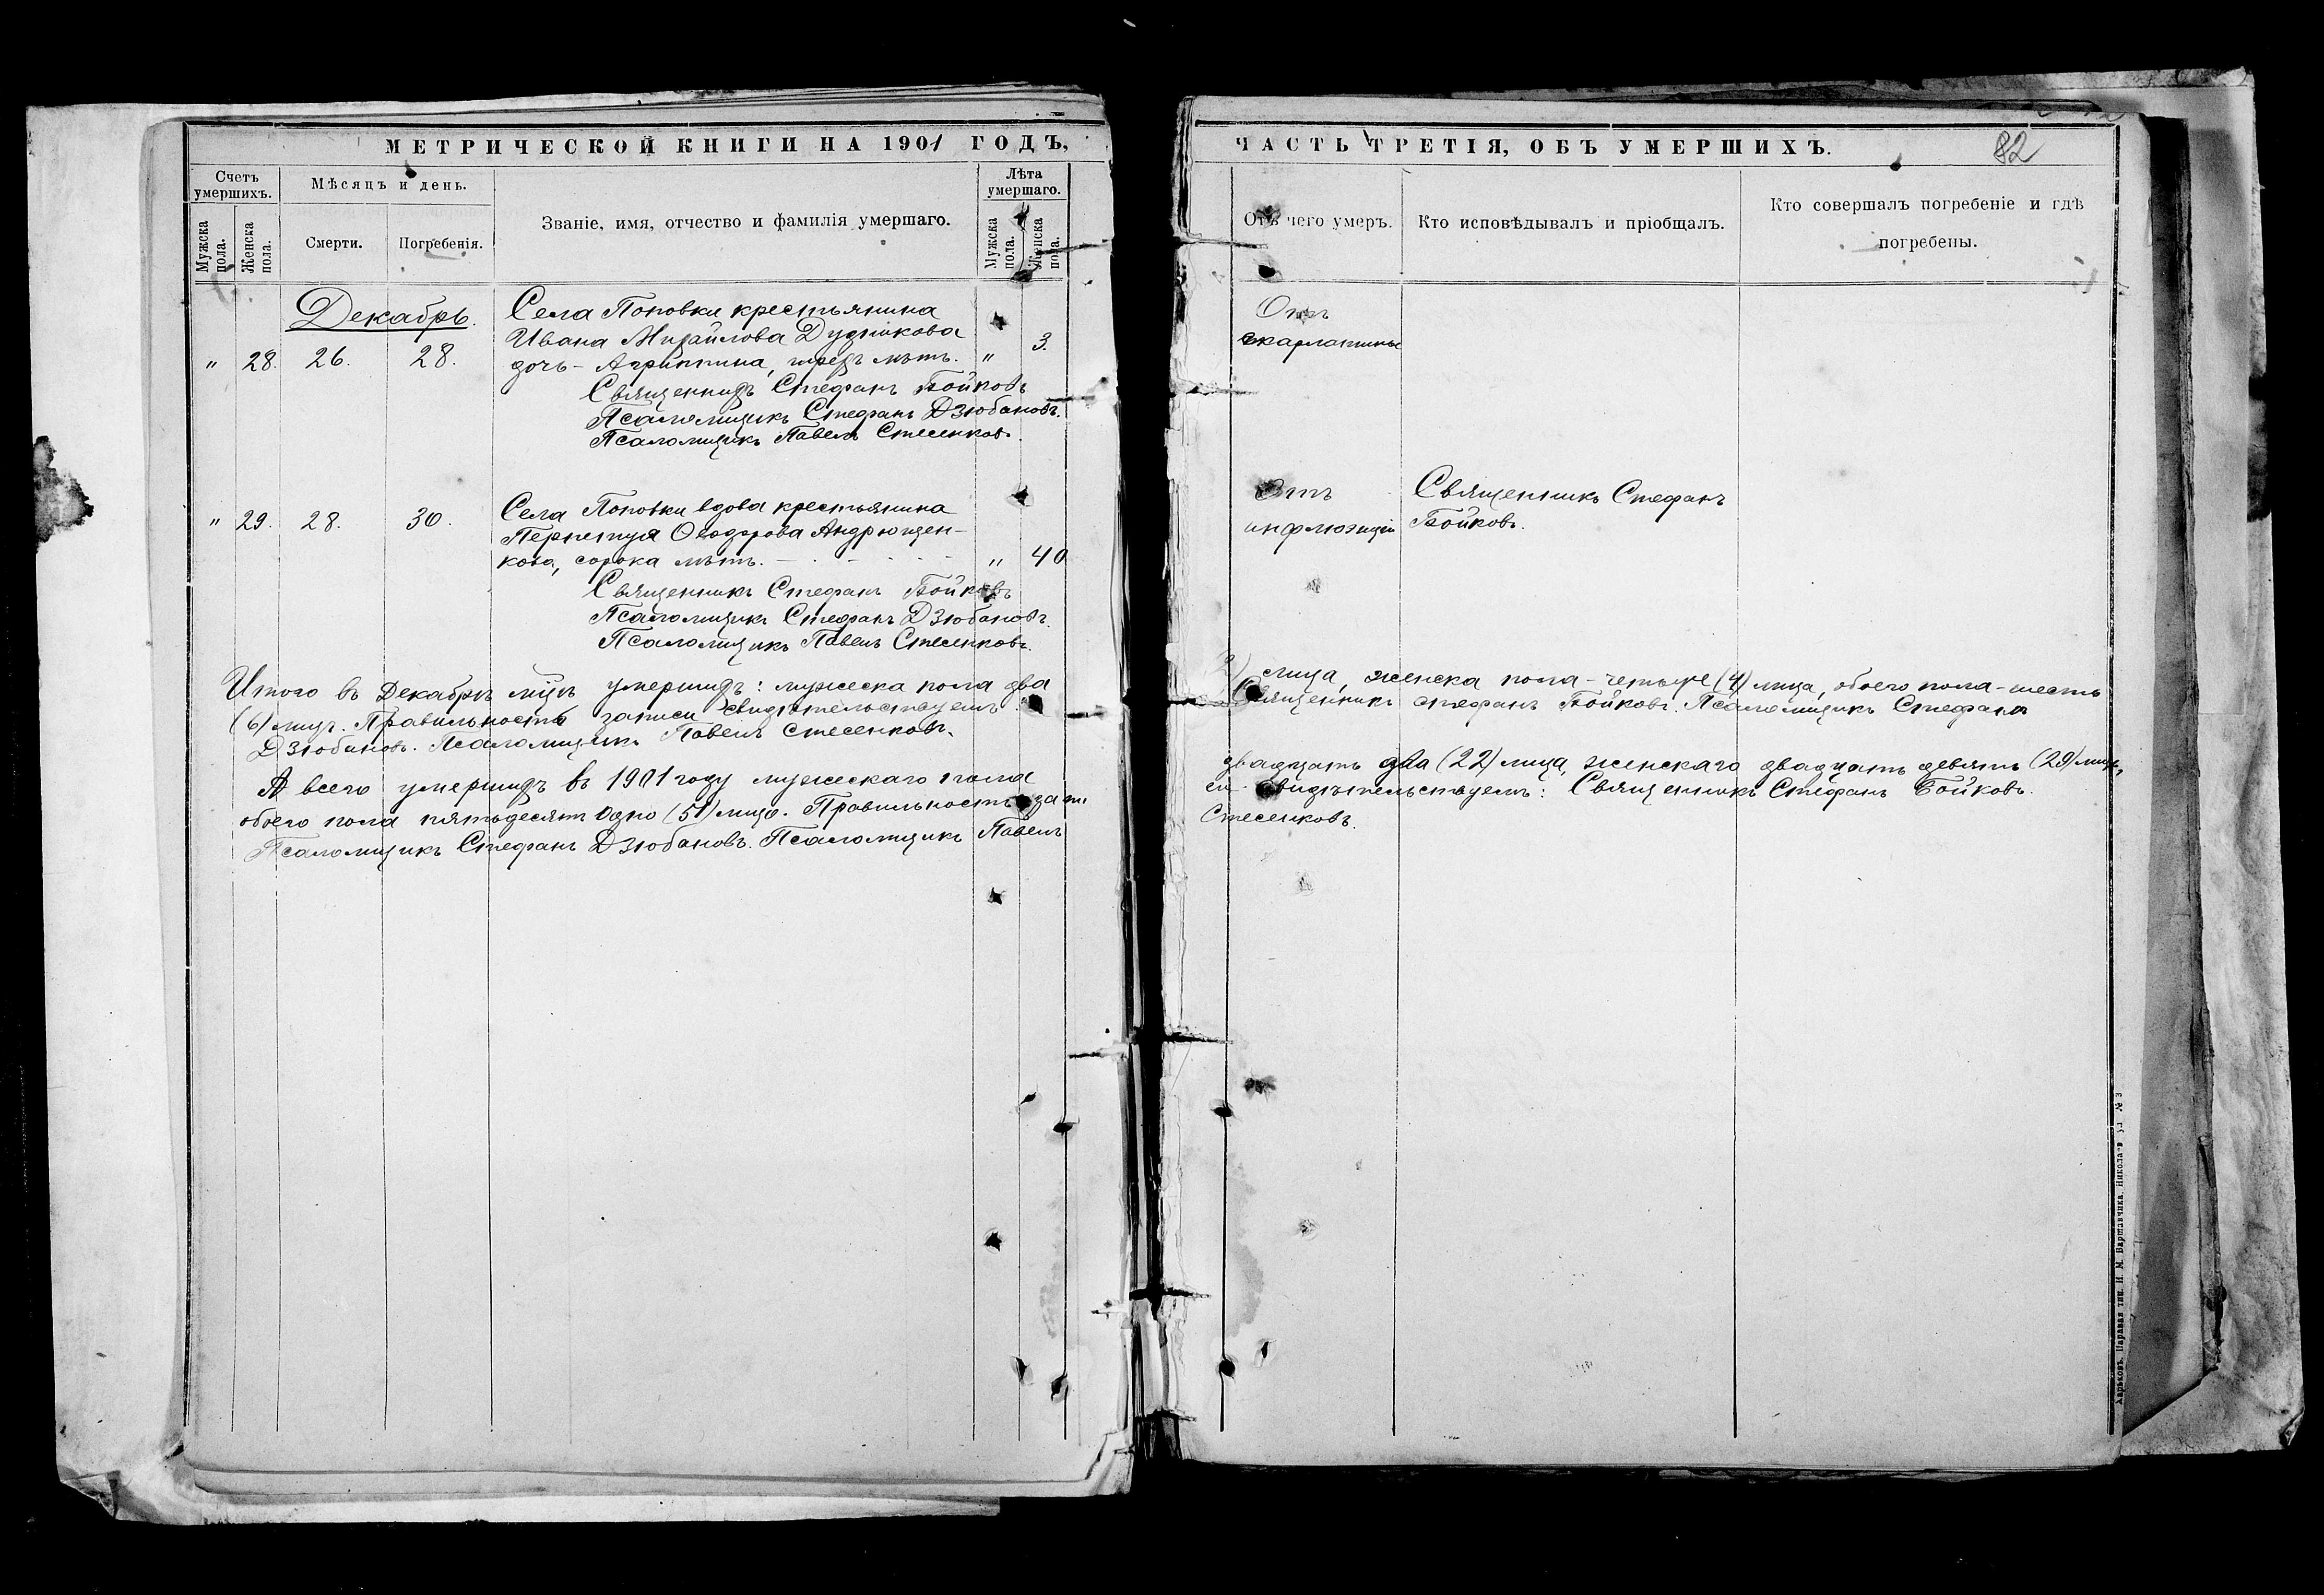 МЕТРИЧЕСКОЙ КНИГИ НА 1901 ГОДЪ,
Счетъ умершихъ.
Мужска пола.
Женска пола.
Мѣсяцъ и день.
Смерти.
Погребенія.
Званіе, имя, отчество и фамилія умершаго.
Лѣта умершаго.
Мужска пола.
Женска пола.
Декабрь.
Села Поповки крестьянина
Ивана Михайлова Дудникова
" 28. 26. 28. дочь - Агриппина, трехъ лѣтъ. " 3.
Священникъ Стефанъ Бойковъ
Псаломщикъ Стефанъ Дзюбановъ.
Псаломщикъ Павелъ Стесенковъ.
Села Поповки вдова крестьянина
" 29. 28. 30. Перпетуя Ѳеодорова Андрющен-
кова, сорока лѣтъ. " 40
Священникъ Стефанъ Бойковъ
Псаломщикъ Стефанъ Дзюбановъ.
Псаломщикъ Павелъ Стесенковъ.
Итого въ Декабрѣ мцѣ умершихъ: мужеска пола два
(6) лицъ. Правильность записи свидѣтельствуемъ:
Дзюбановъ. Псаломщикъ Павелъ Стесенковъ.
А всего умершихъ въ 1901 году мужескаго пола
обоего пола пятьдесятъ одно (51) лицо. Правильность запи
Псаломщикъ Стефанъ Дзюбановъ. Псаломщикъ Павелъ
ЧАСТЬ ТРЕТІЯ, ОБЪ УМЕРШИХЪ.
82
Отъ чего умеръ.
Кто исповѣдывалъ и пріобщалъ.
Кто совершалъ погребеніе и гдѣ погребены.
Отъ
скарлатины
Отъ Священникъ Стефанъ
инфлюэнціи Бойковъ.
2) лица, женска пола - четыре (4) лица, обоего пола - шесть
Священникъ Стефанъ Бойковъ. Псаломщикъ Стефанъ
двадцать два (22) лица, женскаго двадцать девять (29) лицъ,
си свидѣтельствуемъ: Священникъ Стефанъ Бойковъ.
Стесенковъ.
Харьковъ. Паровая тип. И. М. Варшавчика. Николаев ул № 3